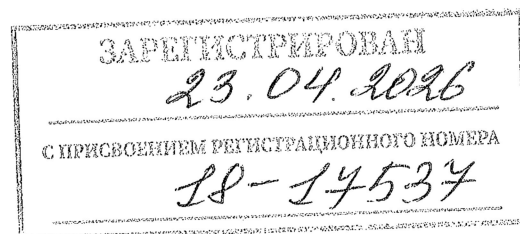 ЗАРЕГИСТРИРОВАН
23.04.2026
С ПРИСВОЕНИЕМ РЕГИСТРАЦИОННОГО НОМЕРА
18-17537